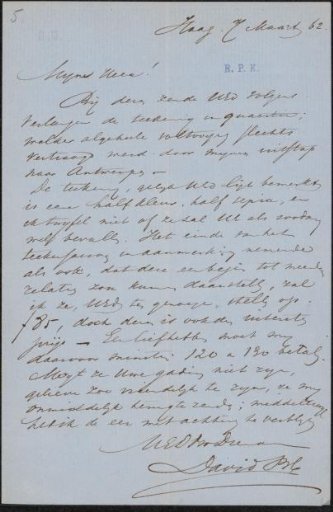 5.
Haag, 7 Maart, 62
R.P.K.
Mijne Heer!
Bij deze zende UEd volgens
verlangen de teekening in quaestie;
welker algeheele voltooijing slechts
vertraagd werd door mijne uitstap
naar Antwerpen —
De teekening, gelijk UEd ligt bemerkt
is een half kleur, half sepia, en
ik twijfel niet of ze zal UE als zoodanig
wel bevallen. Het einde van het
in aanmerking nemende
als ook, dat deze een bewijs tot
relatie zou kunnen daarstell, zal
ik ze, UEd te gevalle, stell op
f85, doch deze is ook de uiterste
prijs — Een liefhebber moet mij
daarvoor minstens 120 a 130 betal.
Mogt ze Uwe gading niet zijn,
gelieve zoo vriendelijk te zijn, ze mij
onmiddelijk terug te zenden; middelerwijl
heb ik de eer met achting te verblijven
UEd Dw Dienaar
David